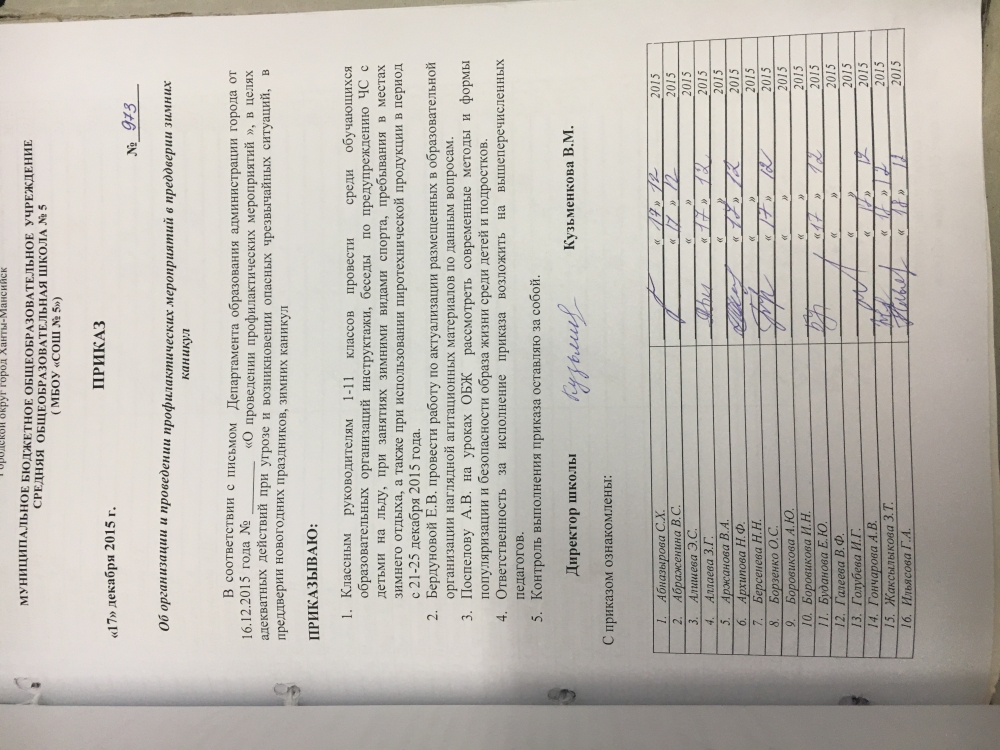 Городской округ город Ханты-Мансийск
МУНИЦИПАЛЬНОЕ БЮДЖЕТНОЕ ОБЩЕОБРАЗОВАТЕЛЬНОЕ УЧРЕЖДЕНИЕ
СРЕДНЯЯ ОБЩЕОБРАЗОВАТЕЛЬНАЯ ШКОЛА № 5
( МБОУ «СОШ № 5»)
ПРИКАЗ
«17» декабря 2015 г. № 973
Об организации и проведении профилактических мероприятий в преддверии зимних
каникул
В соответствии с письмом Департамента образования администрации города от
16.12.2015 года № ______ «О проведении профилактических мероприятий », в целях
адекватных действий при угрозе и возникновении опасных чрезвычайных ситуаций, в
преддверии новогодних праздников, зимних каникул
ПРИКАЗЫВАЮ:
1. Классным руководителям 1-11 классов провести среди обучающихся
образовательных организаций инструктажи, беседы по предупреждению ЧС с
детьми на льду, при занятиях зимними видами спорта, пребывания в местах
зимнего отдыха, а также при использовании пиротехнической продукции в период
с 21-25 декабря 2015 года.
2. Бердуновой Е.В. провести работу по актуализации размещенных в образовательной
организации наглядной агитационных материалов по данным вопросам.
3. Поспелову А.В. на уроках ОБЖ рассмотреть современные методы и формы
популяризации и безопасности образа жизни среди детей и подростков.
4. Ответственность за исполнение приказа возложить на вышеперечисленных
педагогов.
5. Контроль выполнения приказа оставляю за собой.
Директор школы Кузьменкова В.М.
С приказом ознакомлены:
1. Абназырова С.Х. « 17 » 12 2015
2. Абраженина В.С. « 17 » 12 2015
3. Алпиева Э.С. « » 2015
4. Аллаева З.Г. « 17 » 12 2015
5. Аржанова В.А. « » 2015
6. Архипова Н.Ф. « 17 » 12 2015
7. Берсенева Н.Н. « » 2015
8. Борзенко О.С. « 17 » 12 2015
9. Боровикова А.Ю. « » 2015
10. Боровикова И.Н. « » 2015
11. Буданова Е.Ю. « 17 » 12 2015
12. Галеева В.Ф. « » 2015
13. Голубева И.Г. « » 2015
14. Гончарова А.В. « 12 2015
15. Жаксылыкова З.Т. « » 12 2015
16. Ильясова Г.А. « 18 » 12 2015